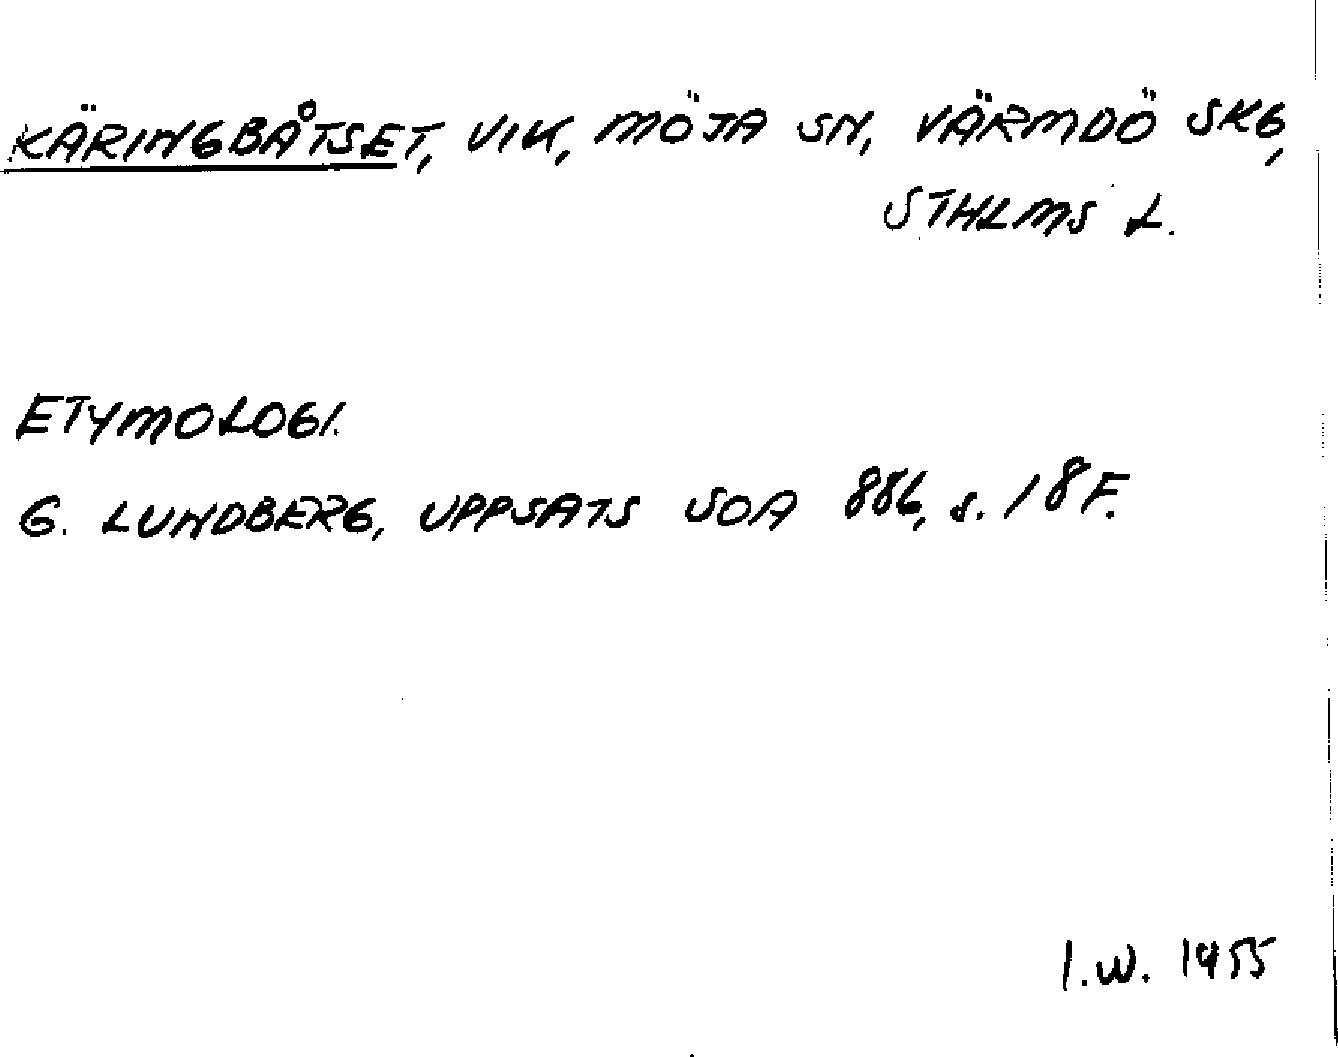 KÄRINGBÅTSET, VIK, MÖJA SN, VÄRMDÖ SKG,
STHLMS L.
ETYMOLOGI.
G. LUNDBERG, UPPSATS SOA 886, s. 18F.
I.W. 1955